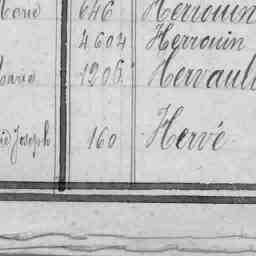 Marie 646 Herrouin
4604 Herrouin
Marie 1206 Hervault
Joseph 160 Hervé